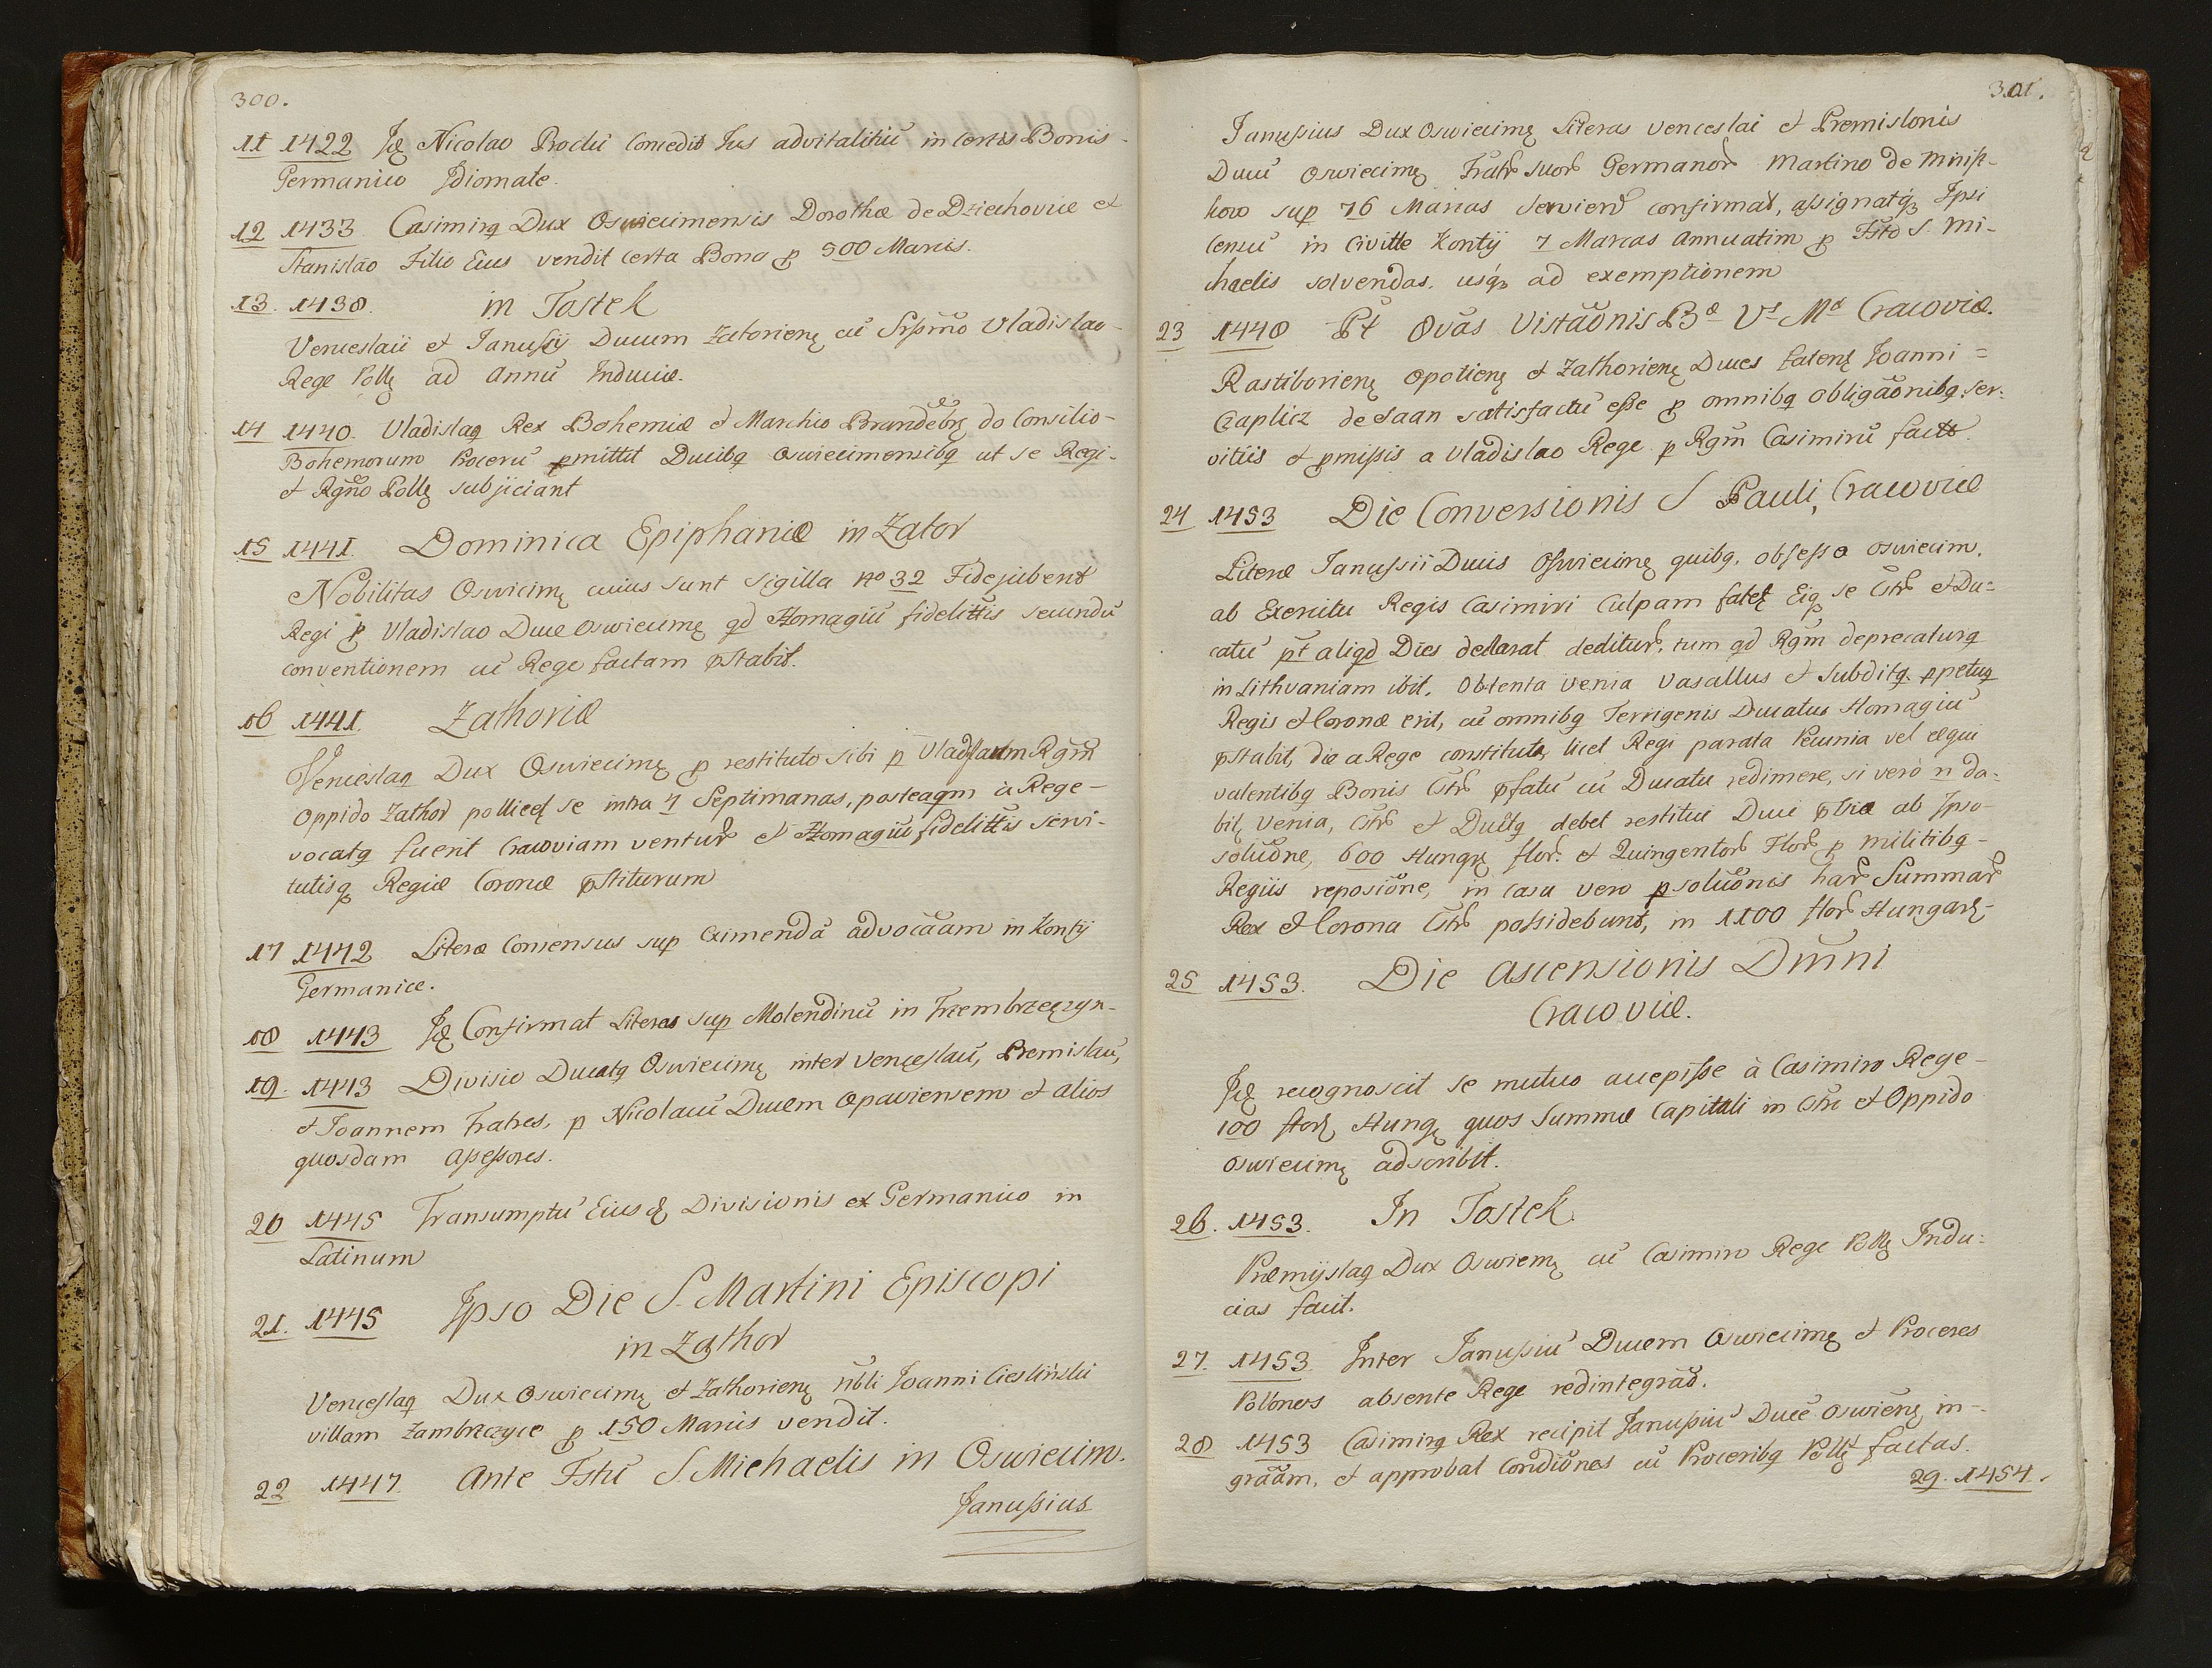 300.
11 1422 Jdē Nicolao Rochi Concedit Jus advitalitiū in certis Bonis
Germanico Jdiomate.
12 1433 Casimirq Dux Oswiecimensis Dorothæ de Dziechovice et
Stanislāo Filio Eius vendit certa Bona p 500 Marcis.
13. 1438. in Tostek
Venceslaii et Janussÿ Ducum Zatorienȩ cū Srpsm̄o Vladislao
Rege Pollȩ ad Annū Induciæ.
14 1440. Vladislaq Rex Bohemiæ et Marchio Brandēbrȩ do Consilio
Bohemorum Procerū pmittit Ducibq oswiecimensibq ut se Regi
et Rgn̄o Pollȩ subjiciant
15 1441. Dominica Epiphaniæ in Zator
Nobilitas Oswicimȩ cuius sunt sigilla no 32 Fidejubent
Regi p Vladislao Duce oswiecimȩ qd Homagiū fidelittis secundū
conventionem cū Rege factam pstabit.
16 1441. Zathoriæ
Venceslaq Dux Oswiecimȩ p restituto sibi p Vladslaum Rgm̄
Oppido Zathor pollicet se intra 7 Septimanas, posteaqm à Rege
vocatq fuerit Cracoviam ventur et Homagiū fidelittis servi-
tutisq Regiæ Coronæ pstiturum
17 1442 Literæ Consensus sup Eximendā advocāam in Kontÿ
Germanice.
18 1443 Jdē Confirmat Literas sup Molendinū in Trzembrzeczyn
19. 1443 Divisio Ducatq Oswiecimȩ inter Vencęslaū, Premislaū,
et Joannem Fratres, p Nicolaū Ducem Opaviensem et alios
quosdam Assessores.
20 1445 Transumptū Eiusdē Divisionis ex Germanico in
Latinum
21. 1445 Jpso Die S. Martini Episcopi
in Zathor
Venceslaq Dux Oswiecimȩ et Zathorienȩ n̄bli Joanni Ciesliński
villam Zambrzczyce p 150 Marcis vendit.
22 1447. Ante Fstū S. Michaelis in Oswiecim.
Janussius
301.
Janussius Dux Oswiecimȩ Literas Venceslai et Premislonis
Ducū Oswiecimȩ Fratr suor Germanor Martino de Minis-
kow sup 76 Marcas servienr confirmat, assignatq Ipsi
Censū in Civitte Kontÿ 7 Marcas Annuatim p Fsto S. Mi-
chaelis solvendas. usq ad exemptionem
23 1448 Pt Ovās Vistāonis Bæ Vs Mæ Cracoviæ.
Rastiborienȩ Opolienȩ et Zathorienȩ Duces fatent Joanni
Czaplicz de Saan satisfactū esse p omnibq obligāonibq ser-
vitiis et pmissis a Vladislao Rege p Rgm̄ Casimirū factis.
24 1453 Die Conversionis S Pauli, Cracoviæ
Literæ Janussii Ducis Osswiecimȩ quibq. obsessa oswiecim.
ab Exercitu Regis Casimiri Culpam fatet Eiq se Cstr et Du-
catū pt aliqd Dies declarat deditur, tum qd Rgm̄ deprecaturq
in Lithvaniam ibit. Obtenta venia Vasallus et subditq ppetuq
Regis et Coronæ erit, cū omnibq Terrigenis Ducatus Homagiū
pstabit, die a Rege constituta, licet Regi parata Pecunia vel æqui
valentibq Bonis Cstr pfatū cū Ducatu redimere, si verò n̄ da-
bit Venia, Cstr et Ductq debet restitui Duci pvia ab Ipso
solūone, 600 Hungȩ flor. et Quingentor Flor p militibq
Regiis reposiōne, in casu vero psolūonis har Summar
Rex et Corona Cstr possidebunt, in 1100 flor Hungarȩ
25 1453. Die Ascensionis Dm̄ni
Cracoviæ.
Jdē recognoscit se mutuo accepisse à Casimiro Rege
100 flor Hungȩ quos Summæ Capitali in Cstr et Oppido
oswiecimȩ adscribit.
26. 1453. In Tostek
Præmÿslaq Dux Oswiemȩ cū Casimiro Rege Pollȩ Indu-
cias facit.
27. 1453 Inter Janussiū Ducem Oswiecimȩ et Proceres
Pollonos absente Rege redintegrāo.
28 1453 Casimirq Rex recipit Janussiū Ducē oswiēnȩ in
grāam, et approbat Condiōnes cū Proceribq Pollȩ factas.
29. 1454.